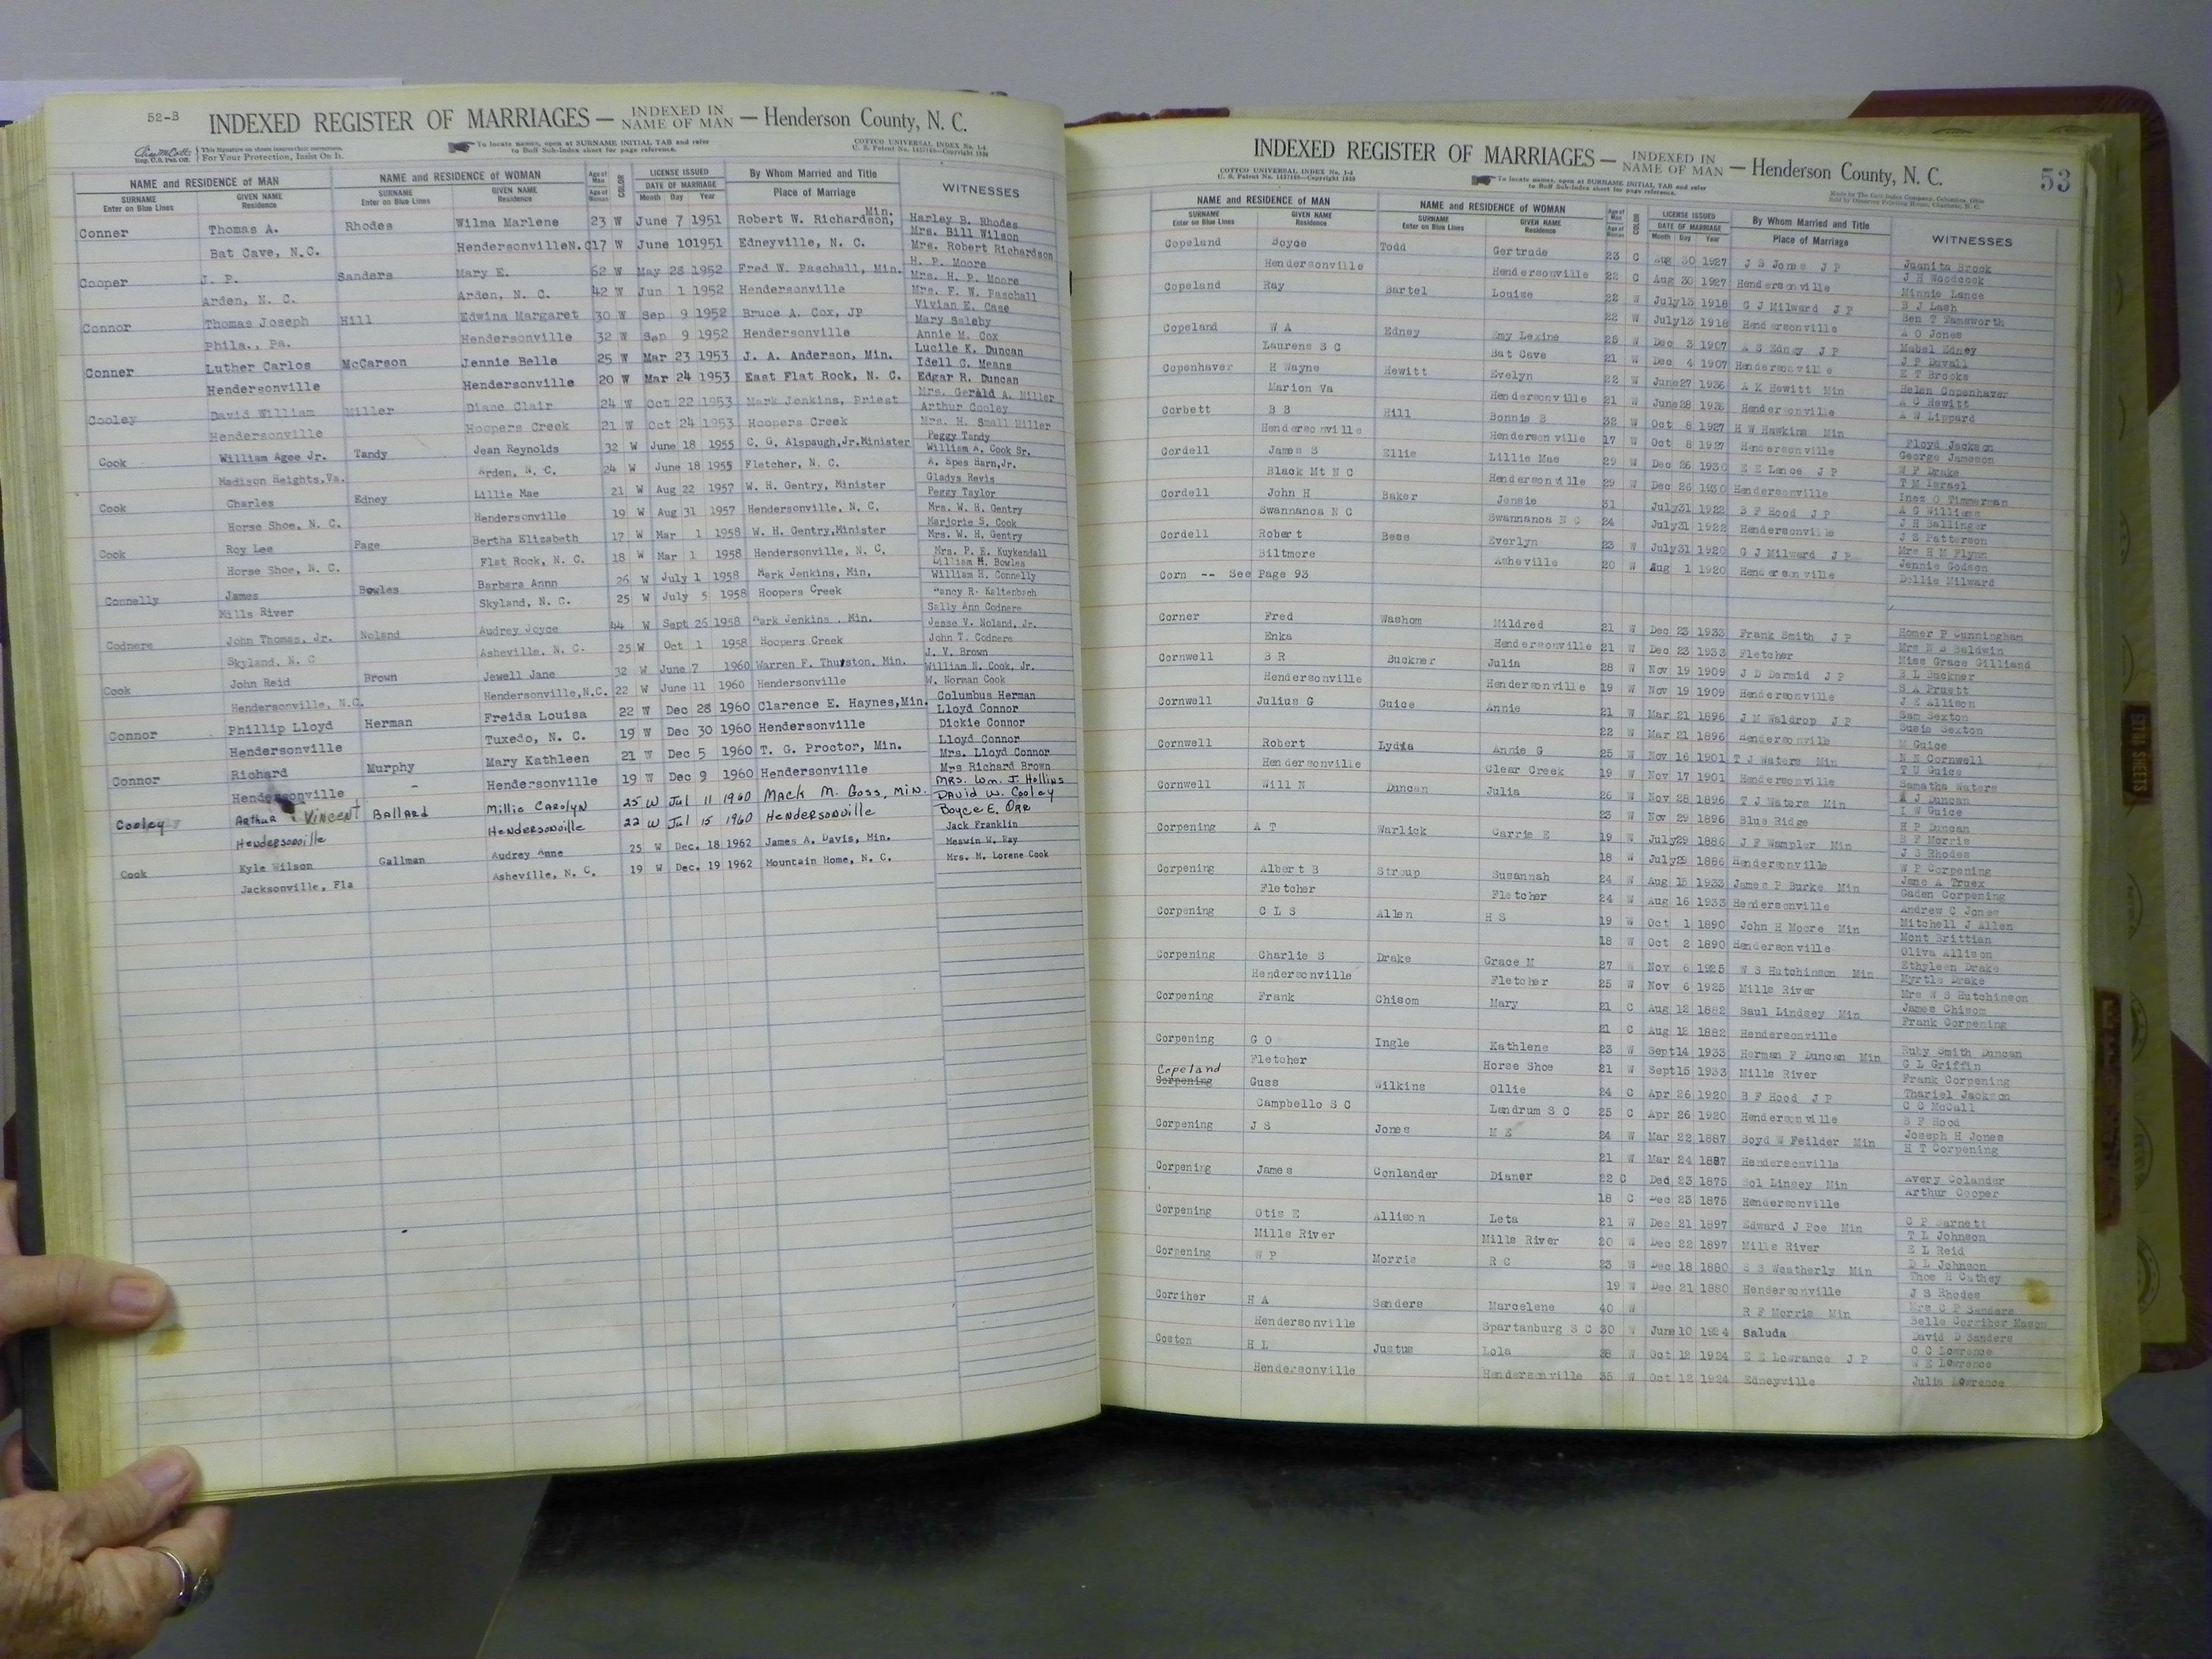 52-B INDEXED REGISTER OF MARRIAGES — INDEXED IN NAME OF MAN — Henderson County, N. C.
This Signature on sheets insures their correctness.
Reg. U.S. Pat. Off. For Your Protection, Insist On It.
To locate names, open at SURNAME INITIAL TAB and refer
to Buff Sub-Index sheet for page reference.
COTTCO UNIVERSAL INDEX No. 1-4
NAME and RESIDENCE OF MAN NAME and RESIDENCE OF WOMAN Age of Man COLOR LICENSE ISSUED By Whom Married and Title WITNESSES
SURNAME GIVEN NAME SURNAME GIVEN NAME Age of Woman DATE OF MARRIAGE Place of Marriage
Enter on Blue Lines Residence Enter on Blue Lines Residence Month Day Year
Conner Thomas A. Rhodes Wilma Marlene 23 W June 7 1951 Robert W. Richardson, Min. Harley B. Rhodes
Mrs. Bill Wilson
Bat Cave, N.C. HendersonvilleN.C 17 W June 10 1951 Edneyville, N. C. Mrs. Robert Richardson
Cooper J. P. Sanders Mary E. 62 W May 28 1952 Fred W. Paschall, Min. H. P. Moore
Mrs. H. P. Moore
Arden, N. C. Arden, N. C. 42 W Jun 1 1952 Hendersonville Mrs. F. W. Paschall
Connor Thomas Joseph Hill Edwina Margaret 30 W Sep 9 1952 Bruce A. Cox, JP Vivian E. Case
Mary Saleby
Phila., Pa. Hendersonville 32 W Sep 9 1952 Hendersonville Annie M. Cox
Conner Luther Carlos McCarson Jennie Belle 25 W Mar 23 1953 J. A. Anderson, Min. Lucile K. Duncan
Idell C. Means
Hendersonville Hendersonville 20 W Mar 24 1953 East Flat Rock, N. C. Edgar R. Duncan
Cooley David William Miller Diane Clair 24 W Oct 22 1953 Mark Jenkins, Priest Mrs. Gerald A. Miller
Arthur Cooley
Hendersonville Hoopers Creek 21 W Oct 24 1953 Hoopers Creek Mrs. H. Small Miller
Cook William Agee Jr. Tandy Jean Reynolds 32 W June 18 1955 C. G. Alspaugh,Jr.Minister Peggy Tandy
William A. Cook Sr.
Madison Heights,Va. Arden, N. C. 24 W June 18 1955 Fletcher, N. C. A. Spes Harn,Jr.
Cook Charles Edney Lillie Mae 21 W Aug 22 1957 W. H. Gentry, Minister Gladys Revis
Peggy Taylor
Horse Shoe, N. C. Hendersonville 19 W Aug 31 1957 Hendersonville, N. C. Mrs. W. H. Gentry
Cook Roy Lee Page Bertha Elizabeth 17 W Mar 1 1958 W. H. Gentry,Minister Marjorie S. Cook
Mrs. W. H. Gentry
Horse Shoe, N. C. Flat Rock, N. C. 18 W Mar 1 1958 Hendersonville, N. C. Mrs. P. E. Kuykendall
Connelly James Bowles Barbara Annn 26 W July 1 1958 Mark Jenkins, Min. Lilliam M. Bowles
William H. Connelly
Mills River Skyland, N. C. 25 W July 5 1958 Hoopers Creek Nancy R. Kaltenbach
Codnere John Thomas, Jr. Noland Audrey Joyce 44 W Sept 26 1958 Mark Jenkins . Min. Sally Ann Codnere
Jesse V. Noland, Jr.
Skyland, N. C Asheville, N. C. 25 W Oct 1 1958 Hoopers Creek John T. Codnere
Cook John Reid Brown Jewell Jane 32 W June 7 1960 Warren F. Thurston, Min. J. V. Brown
William N. Cook, Jr.
Hendersonville, N.C. Hendersonville,N.C. 22 W June 11 1960 Hendersonville W. Norman Cook
Connor Phillip Lloyd Herman Freida Louisa 22 W Dec 28 1960 Clarence E. Haynes,Min. Columbus Herman
Lloyd Connor
Hendersonville Tuxedo, N. C. 19 W Dec 30 1960 Hendersonville Dickie Connor
Connor Richard Murphy Mary Kathleen 21 W Dec 5 1960 T. G. Proctor, Min. Lloyd Connor
Mrs. Lloyd Connor
Hendersonville Hendersonville 19 W Dec 9 1960 Hendersonville Mrs Richard Brown
Cooley Arthur Vincent Ballard Millie Carolyn 25 W Jul 11 1960 Mack M. Goss, Min. Mrs. Wm. J. Hollins
David W. Cooley
Hendersonville Hendersonville 22 W Jul 15 1960 Hendersonville Boyce E. Orr
Cook Kyle Wilson Gallman Audrey Anne 25 W Dec. 18 1962 James A. Davis, Min. Jack Franklin
Meswin W. Ray
Jacksonville, Fla Asheville, N. C. 19 W Dec. 19 1962 Mountain Home, N. C. Mrs. M. Lorene Cook
INDEXED REGISTER OF MARRIAGES — INDEXED IN NAME OF MAN — Henderson County, N. C. 53
COTTCO UNIVERSAL INDEX No. 1-4
To locate names, open at SURNAME INITIAL TAB and refer
to Buff Sub-Index sheet for page reference.
NAME and RESIDENCE OF MAN NAME and RESIDENCE OF WOMAN Age of Man COLOR LICENSE ISSUED By Whom Married and Title WITNESSES
SURNAME GIVEN NAME SURNAME GIVEN NAME Age of Woman DATE OF MARRIAGE Place of Marriage
Enter on Blue Lines Residence Enter on Blue Lines Residence Month Day Year
Copeland Boyce Todd Gertrude 23 C Aug 30 1927 J S Jones J P Juanita Brock
J H Woodcock
Hendersonville Hendersonville 22 C Aug 30 1927 Hendersonville Minnie Lance
Copeland Ray Bartel Louise 22 W July13 1918 G J Milward J P B J Lash
Ben T Tamsworth
22 W July13 1918 Hendersonville A O Jones
Copeland W A Edney Emy Lexine 25 W Dec 3 1907 A S Edney J P Mabel Edney
J P Duvall
Laurens S C Bat Cave 21 W Dec 4 1907 Hendersonville E T Brooks
Copenhaver H Wayne Hewitt Evelyn 22 W June27 1936 A K Hewitt Min Helen Copenhaver
A C Hewitt
Marion Va Hendersonville 21 W June28 1936 Hendersonville A W Lippard
Corbett B B Hill Bonnie B 32 W Oct 8 1927 H W Hawkins Min
Floyd Jackson
Hendersonville Hendersonville 17 W Oct 8 1927 Hendersonville George Jameson
Cordell James S Ellis Lillie Mae 29 W Dec 26 1930 E E Lance J P W F Drake
T M Israel
Black Mt N C Hendersonville 29 W Dec 26 1930 Hendersonville Inez O Timmerman
Cordell John H Baker Jensie 31 July31 1922 B F Hood J P A G Williams
J H Ballinger
Swannanoa N C Swannanoa N C 24 July31 1922 Hendersonville J S Patterson
Cordell Robert Bess Everlyn 23 W July31 1920 G J Milward J P Mrs H M Flynn
Jennie Godson
Biltmore Asheville 20 W Aug 1 1920 Hendersonville Dollie Milward
Corn -- See Page 93
Corner Fred Washom Mildred 21 W Dec 23 1933 Frank Smith J P Homer P Cunningham
Mrs N B Baldwin
Enka Hendersonville 21 W Dec 23 1933 Fletcher Miss Grace Gilliand
Cornwell B R Buckner Julia 28 W Nov 19 1909 J D Dermid J P B L Buckner
S A Pruett
Hendersonville Hendersonville 19 W Nov 19 1909 Hendersonville J E Allison
Cornwell Julius G Guice Annie 21 W Mar 21 1896 J M Waldrop J P Sam Sexton
Susie Sexton
22 W Mar 21 1896 Hendersonville M Guice
Cornwell Robert Lydia Annie G 25 W Nov 16 1901 T J Waters Min N N Cornwell
T U Guice
Hendersonville Clear Creek 19 W Nov 17 1901 Hendersonville Samatha Waters
Cornwell Will N Duncan Julia 26 W Nov 28 1896 T J Waters Min A J Duncan
I W Guice
23 W Nov 29 1896 Blue Ridge H P Duncan
Corpening A T Warlick Carrie E 19 W July29 1886 J F Wampler Min R F Morris
J S Rhodes
18 W July29 1886 Hendersonville W P Corpening
Corpening Albert B Stroup Susannah 24 W Aug 15 1933 James P Burke Min Jane A Truex
Gaden Corpening
Fletcher Fletcher 24 W Aug 16 1933 Hendersonville Andrew C Jones
Corpening C L S Allen H S 19 W Oct 1 1890 John H Moore Min Mitchell J Allen
Mont Brittian
18 W Oct 2 1890 Hendersonville Oliva Allison
Corpening Charlie S Drake Grace M 27 W Nov 6 1925 W S Hutchinson Min Ethyleen Drake
Myrtle Drake
Hendersonville Fletcher 25 W Nov 6 1925 Mills River Mrs W S Hutchinson
Corpening Frank Chisom Mary 21 C Aug 12 1882 Saul Lindsey Min James Chisom
Frank Corpening
21 C Aug 12 1882 Hendersonville
Corpening G O Ingle Kathlene 23 W Sept14 1933 Herman F Duncan Min Ruby Smith Duncan
G L Griffin
Fletcher Horse Shoe 21 W Sept15 1933 Mills River Frank Corpening
Copeland
Corpening Guss Wilkins Ollie 24 C Apr 26 1920 B F Hood J P Thariel Jackson
C C McCall
Campbello S C Landrum S C 25 C Apr 26 1920 Hendersonville B F Hood
Corpening J S Jones M E 24 W Mar 22 1887 Boyd W Feilder Min Joseph H Jones
H T Corpening
21 W Mar 24 1887 Hendersonville
Corpening James Conlander Dianer 22 C Ded 23 1875 Sol Linsey Min Avery Colander
Arthur Cooper
18 C Dec 23 1875 Hendersonville
Corpening Otis E Allison Leta 21 W Dec 21 1897 Edward J Poe Min C P Barnett
T L Johnson
Mills River Mills River 20 W Dec 22 1897 Mills River E L Reid
Corpening W P Morris R C 23 W Dec 18 1880 S S Weatherly Min D L Johnson
Thos H Cathey
19 W Dec 21 1880 Hendersonville J S Rhodes
Corriher H A Sanders Marcelene 40 W R F Morris Min Mrs C P Sanders
Belle Corriher Mason
Hendersonville Spartanburg S C 30 W June10 1924 Saluda David D Sanders
Coston H L Justus Lola 38 W Oct 12 1924 E E Lowrance J P C C Lowrence
W E Lowrence
Hendersonville Hendersonville 35 W Oct 12 1924 Edneyville Julia Lowrence
EXTRA SHEETS